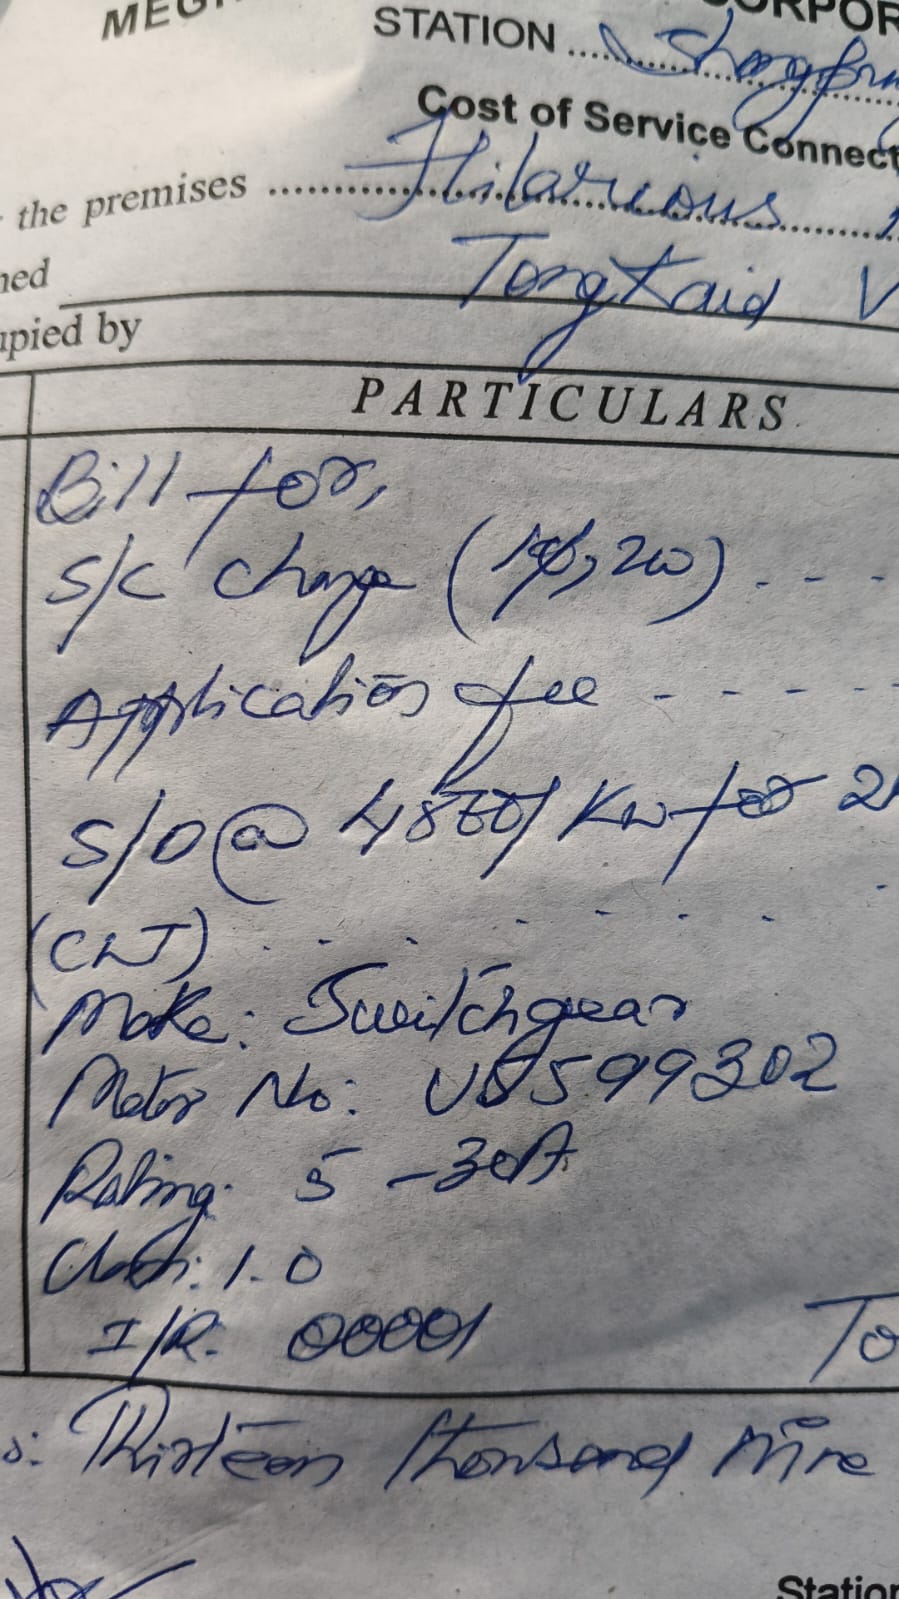 STATION
Cost of Service Connect
the premises Hilarious
Tongkaid V
upied by
PARTICULARS
Bill for,
S/C charge (1φ, 20)
Application fee
S/D @ /Kw for 2
(CLT)
Make: Switchgear
Meter No: U8599302
Rating: 5 - 30A
Class: 1.0
I/R: 00001
To
Thirteen Thousand Nine
Station